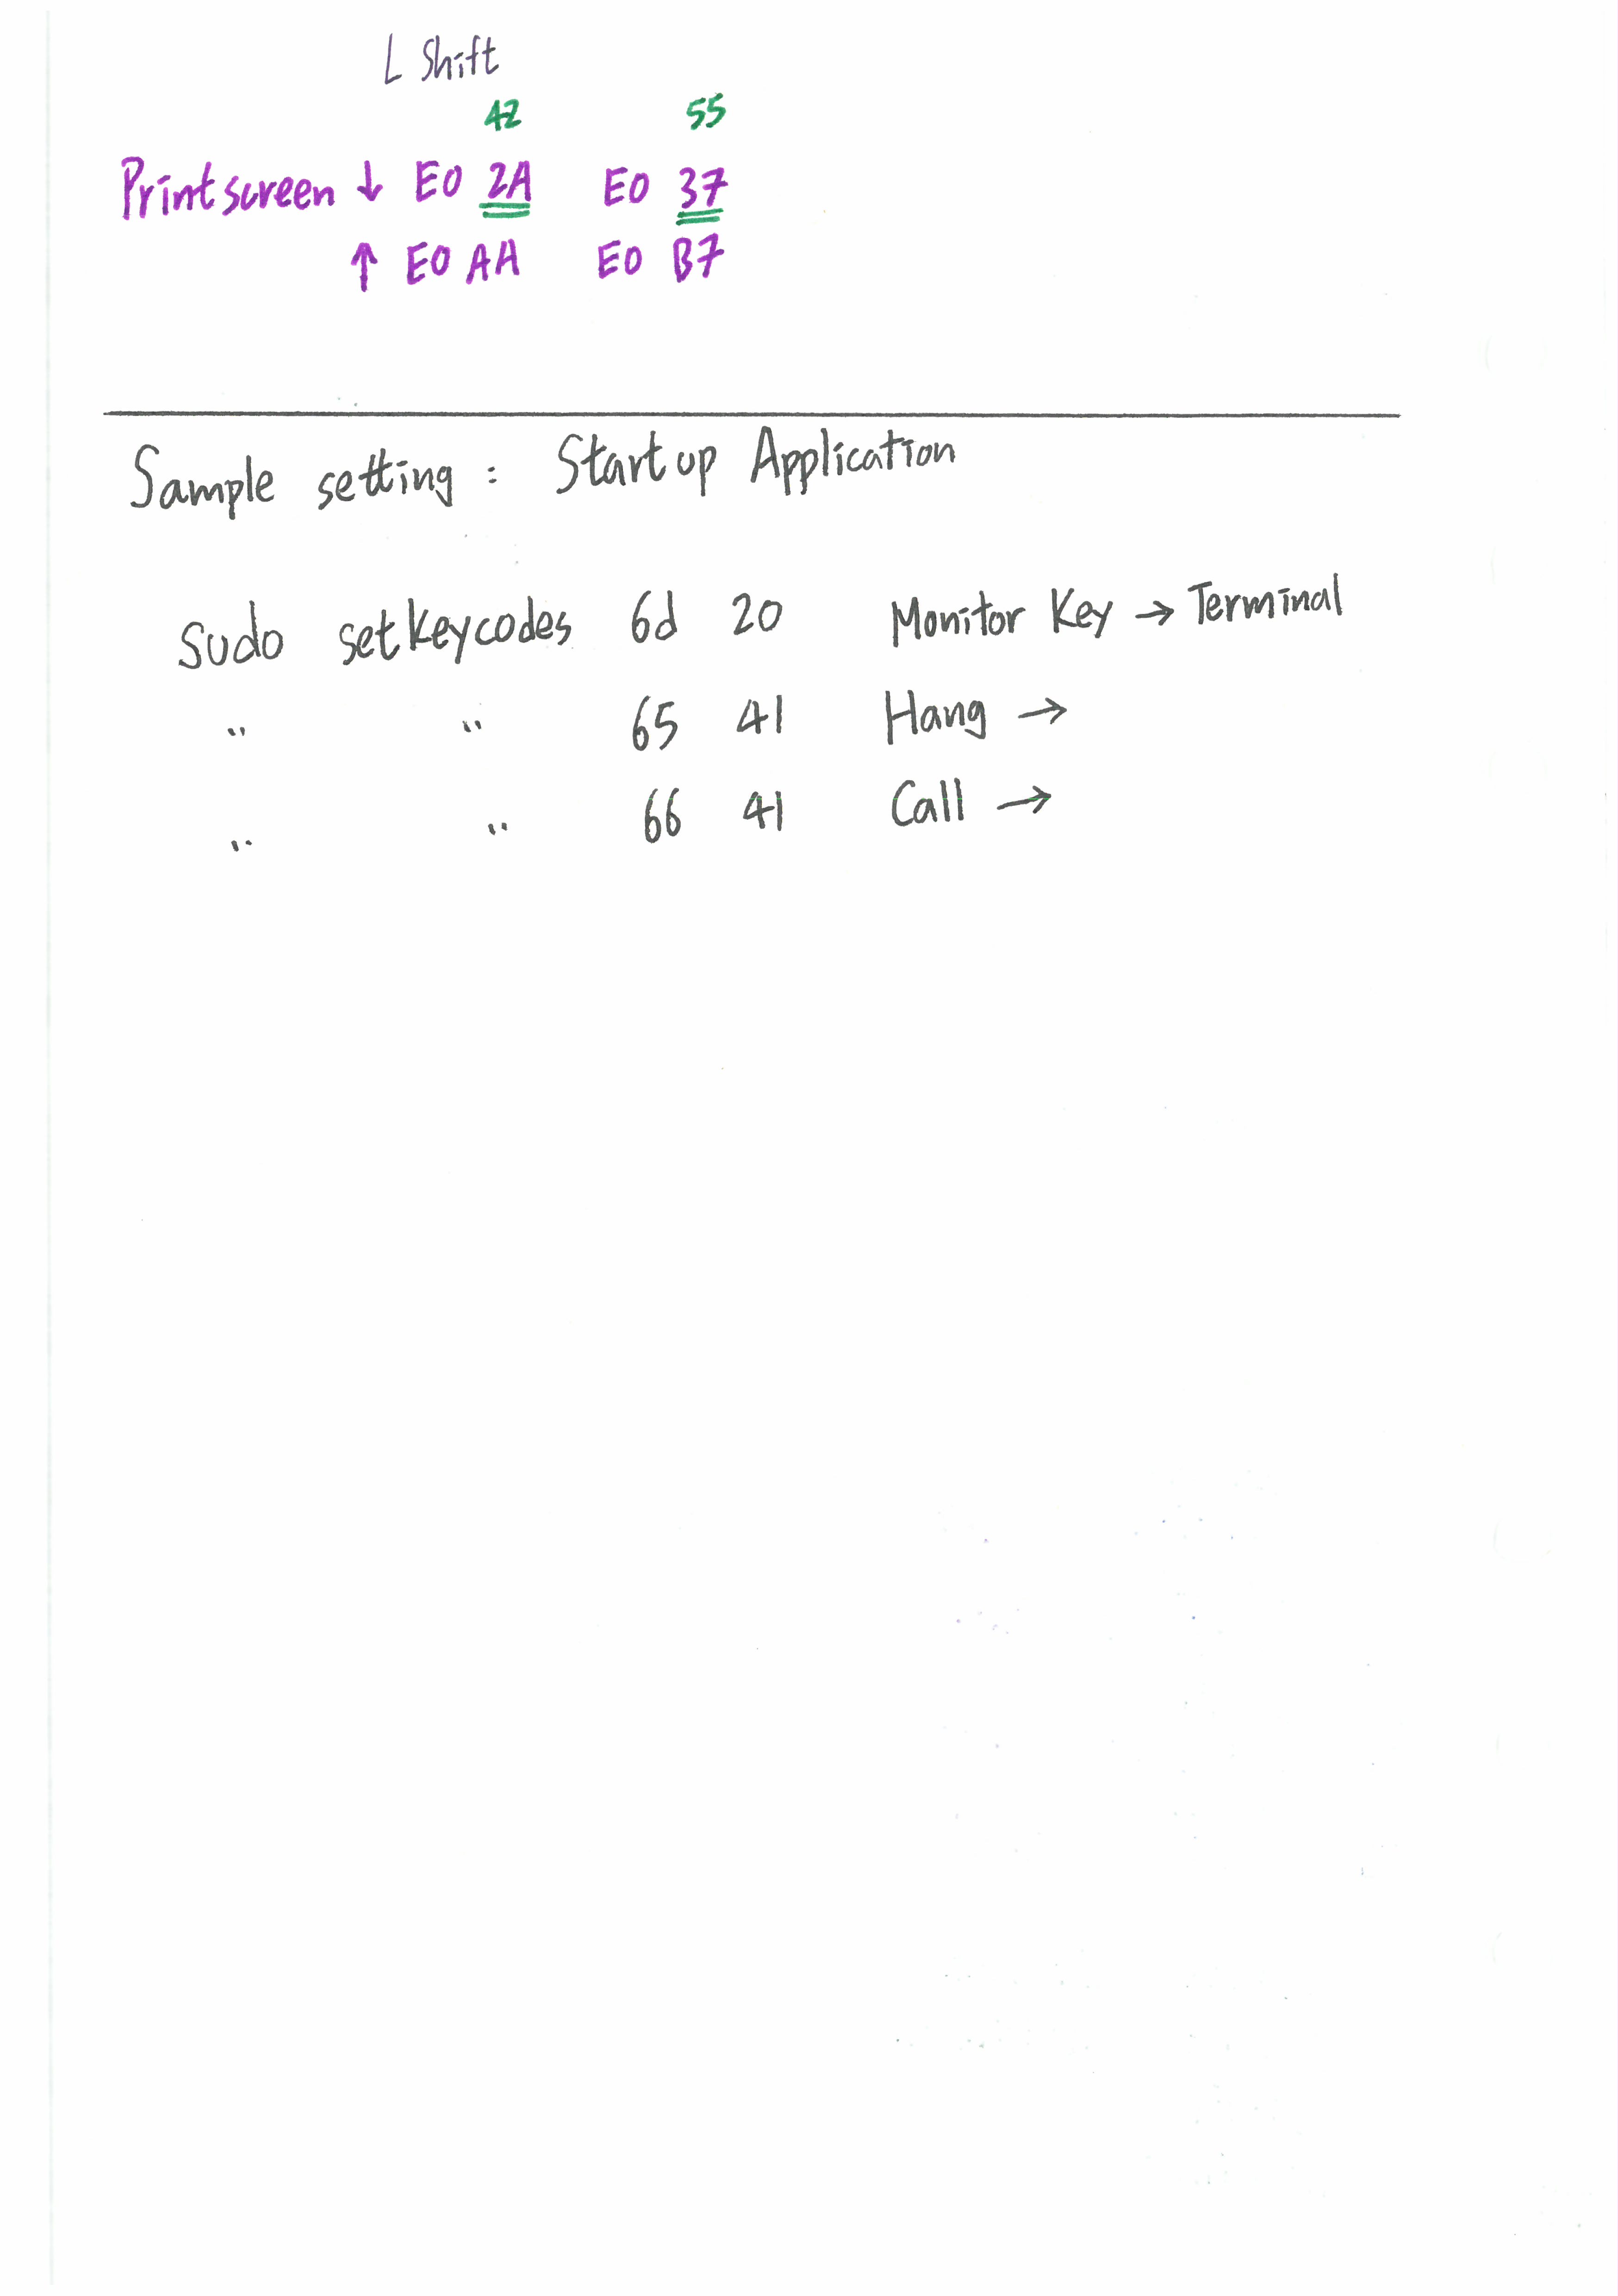 L Shift
42 55
Printscreen ↓ E0 2A E0 37
↑ E0 AA E0 B7
Sample setting : Startup Application
Sudo setkeycodes 6d 20 Monitor Key → Terminal
" " 65 41 Hang →
" " 66 41 Call →